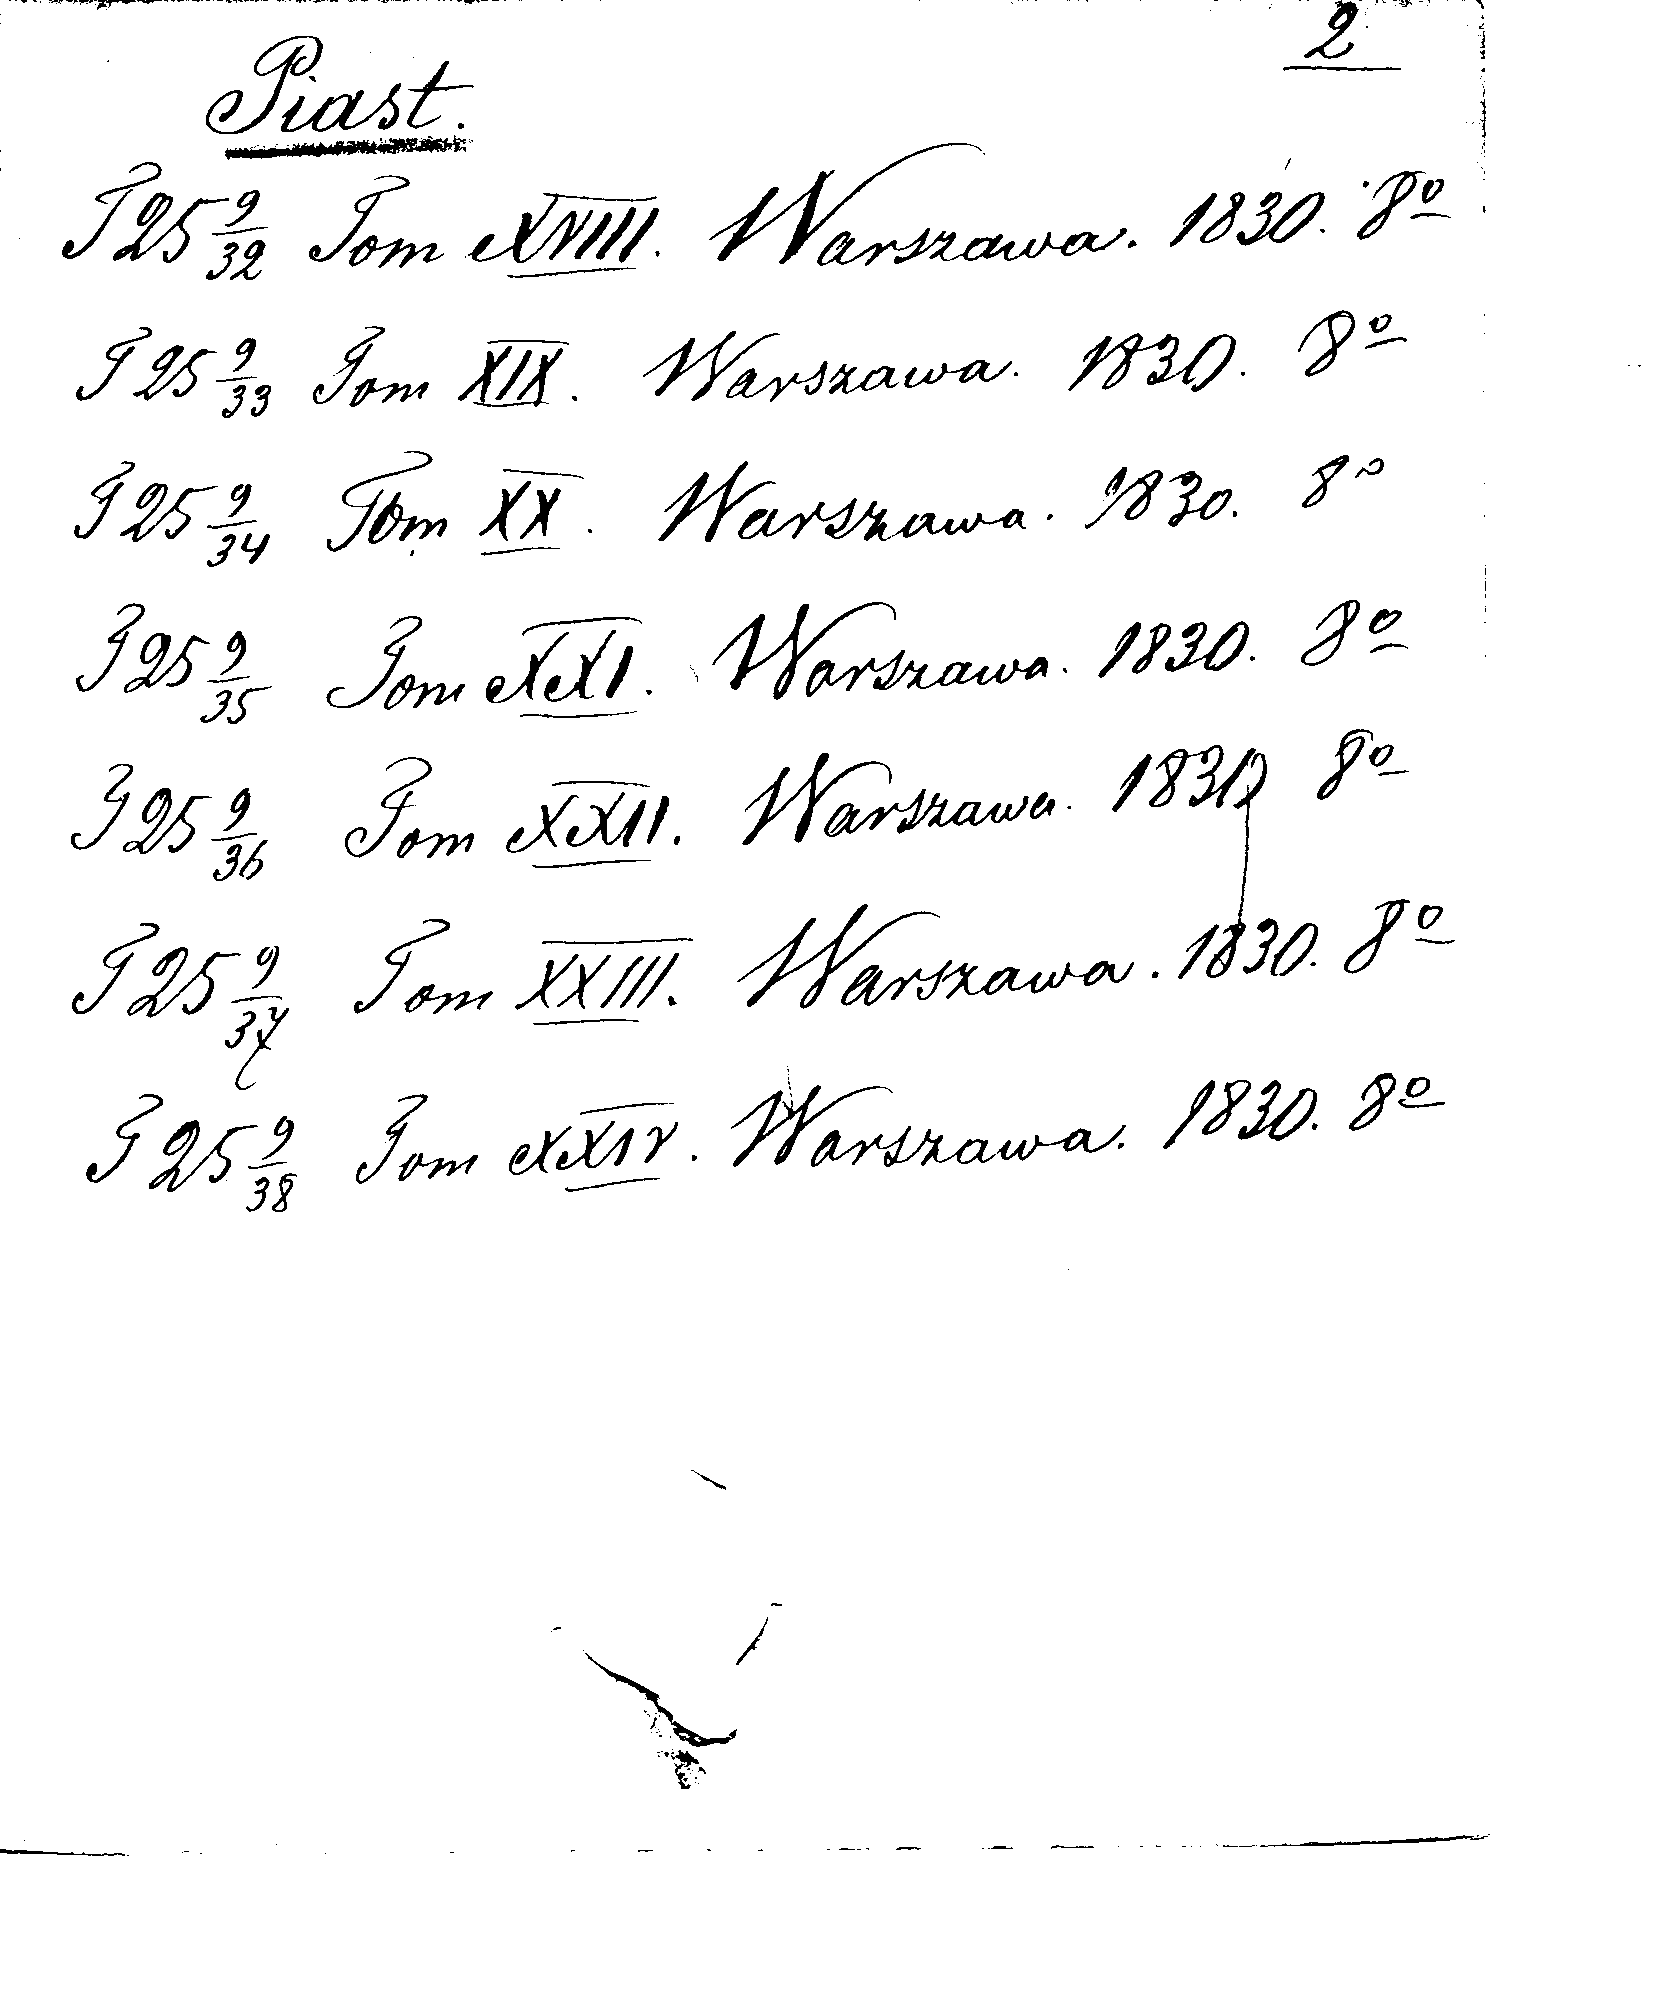 2
Piast.
T 25 9/32 Tom XVIII. Warszawa. 1830. 8º
T 25 9/33 Tom XIX. Warszawa. 1830. 8º
T 25 9/34 Tom XX. Warszawa. 1830. 8º
T 25 9/35 Tom XXI. Warszawa. 1830. 8º
T 25 9/36 Tom XXII. Warszawa. 1830 8º
T 25 9/37 Tom XXIII. Warszawa. 1830. 8º
T 25 9/38 Tom XXIV. Warszawa. 1830. 8º